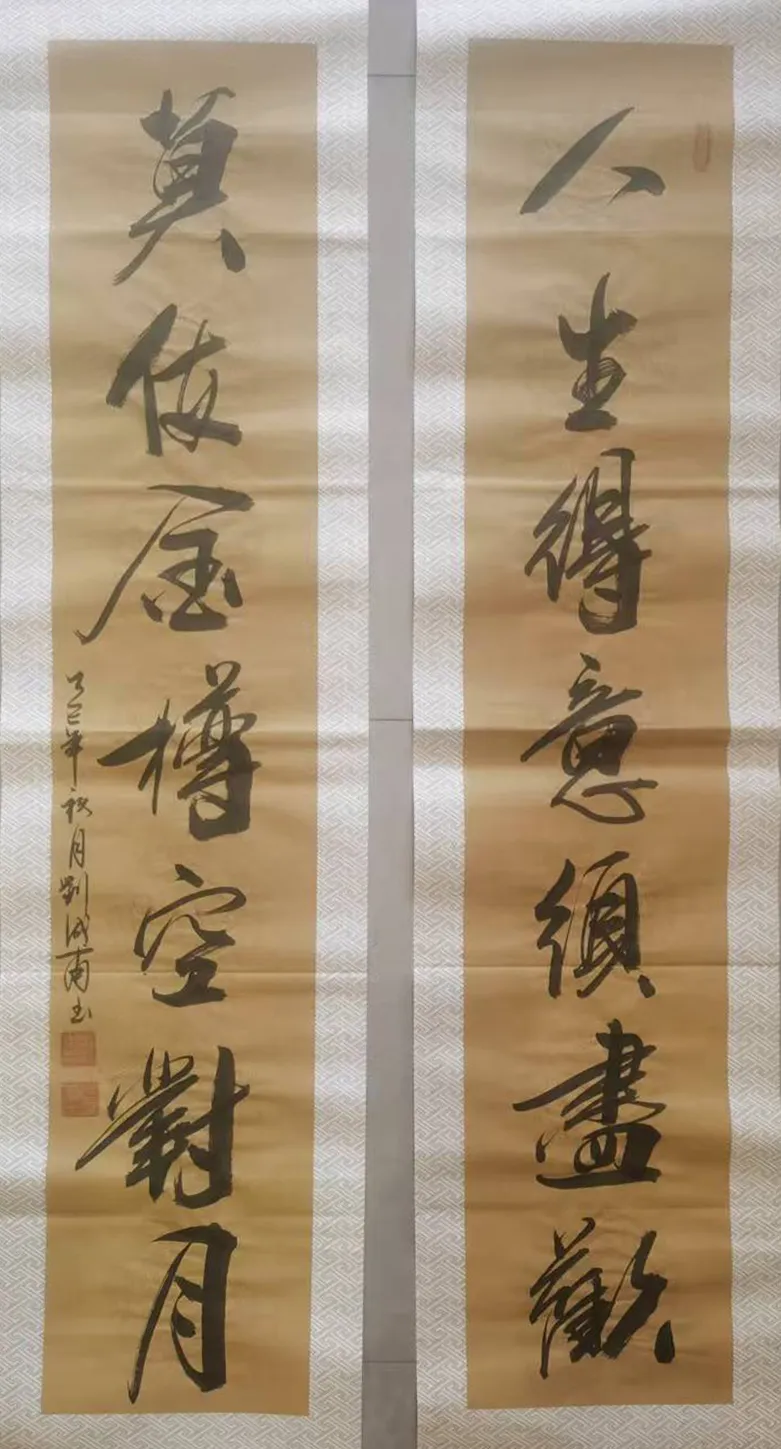 人生得意須盡歡
莫使金樽空對月
乙巳年秋月劉书